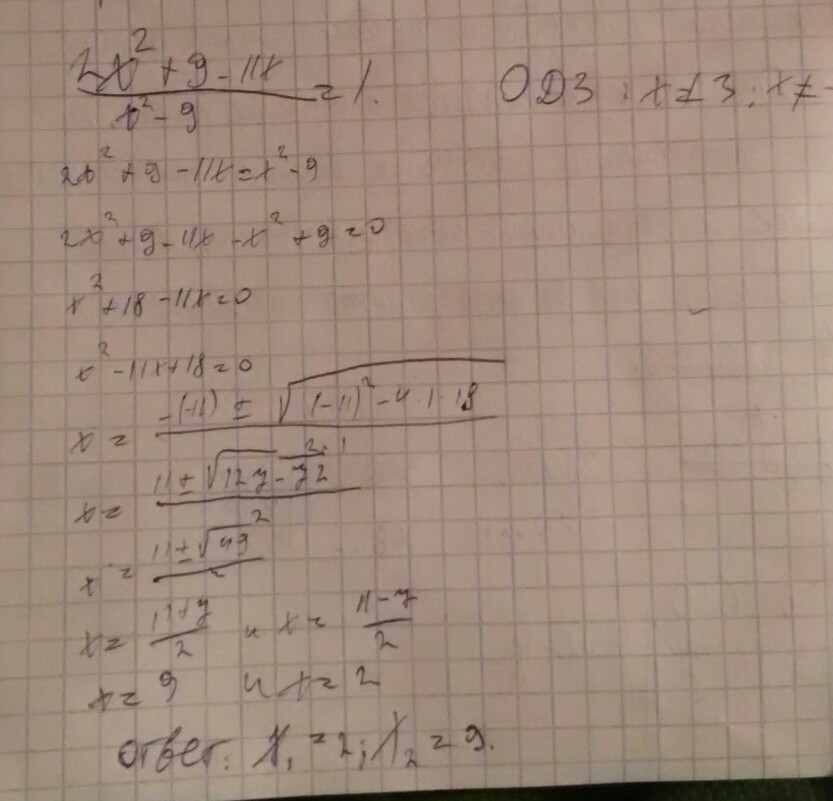 2x² + 9 - 11x / x² - 9 = 1. ОДЗ : x ≠ 3 ; x ≠ -
2x² + 9 - 11x = x² - 9
2x² + 9 - 11x - x² + 9 = 0
x² + 18 - 11x = 0
x² - 11x + 18 = 0
x = -(-11) ± √(-11)² - 4·1·18 / 2·1
x = 11 ± √127 - 72 / 2
x = 11 ± √49 / 2
x = 11+7 / 2 и x = 11-7 / 2
x = 9 и x = 2
ответ: x₁ = 2; x₂ = 9.